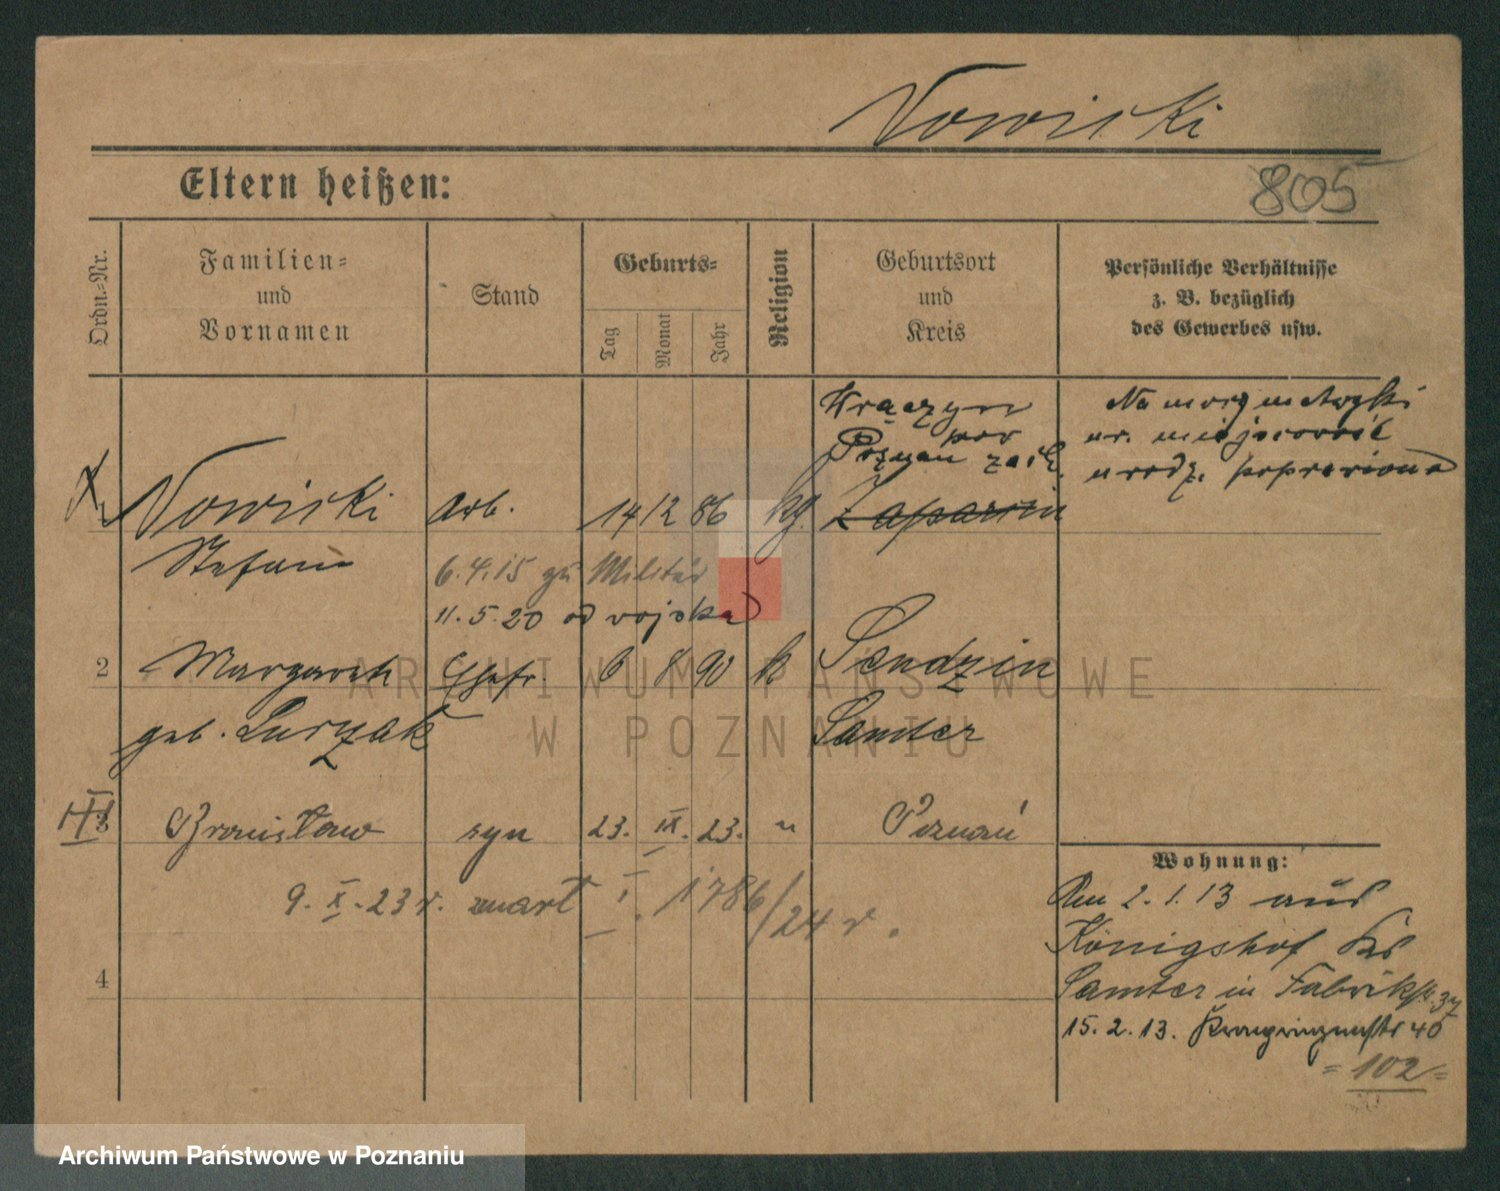 Nowicki
Eltern heißen:
805
Ordn.=Nr.
Familien=
und
Vornamen
Stand
Geburts=
Tag
Monat
Jahr
Religion
Geburtsort
und
Kreis
Persönliche Verhältnisse
z. B. bezüglich
des Gewerbes usw.
Krączyn
pow
Poznań zach.
Na mocy metryki
ur. miejscowość
urodz. poprawiona
Nowicki Arb. 14 12 86 kg.
Stefan
6.4.15 zu Militär
11.5.20 od wojska
2 Margareth Ehefr. 6 8 90 k Sendzin
geb. Samter
3 Bronisław syn 23. IX. 23. " Poznań
9. X. 23 r. I. 1786/24 r.
4
Wohnung:
Am 2.1.13 aus
Königshof Krs
Samter in Fabrikstr. 37
15.2.13. Kronprinzenstr 40
= 102 =
ARCHIWUM PAŃSTWOWE
W POZNANIU
Archiwum Państwowe w Poznaniu